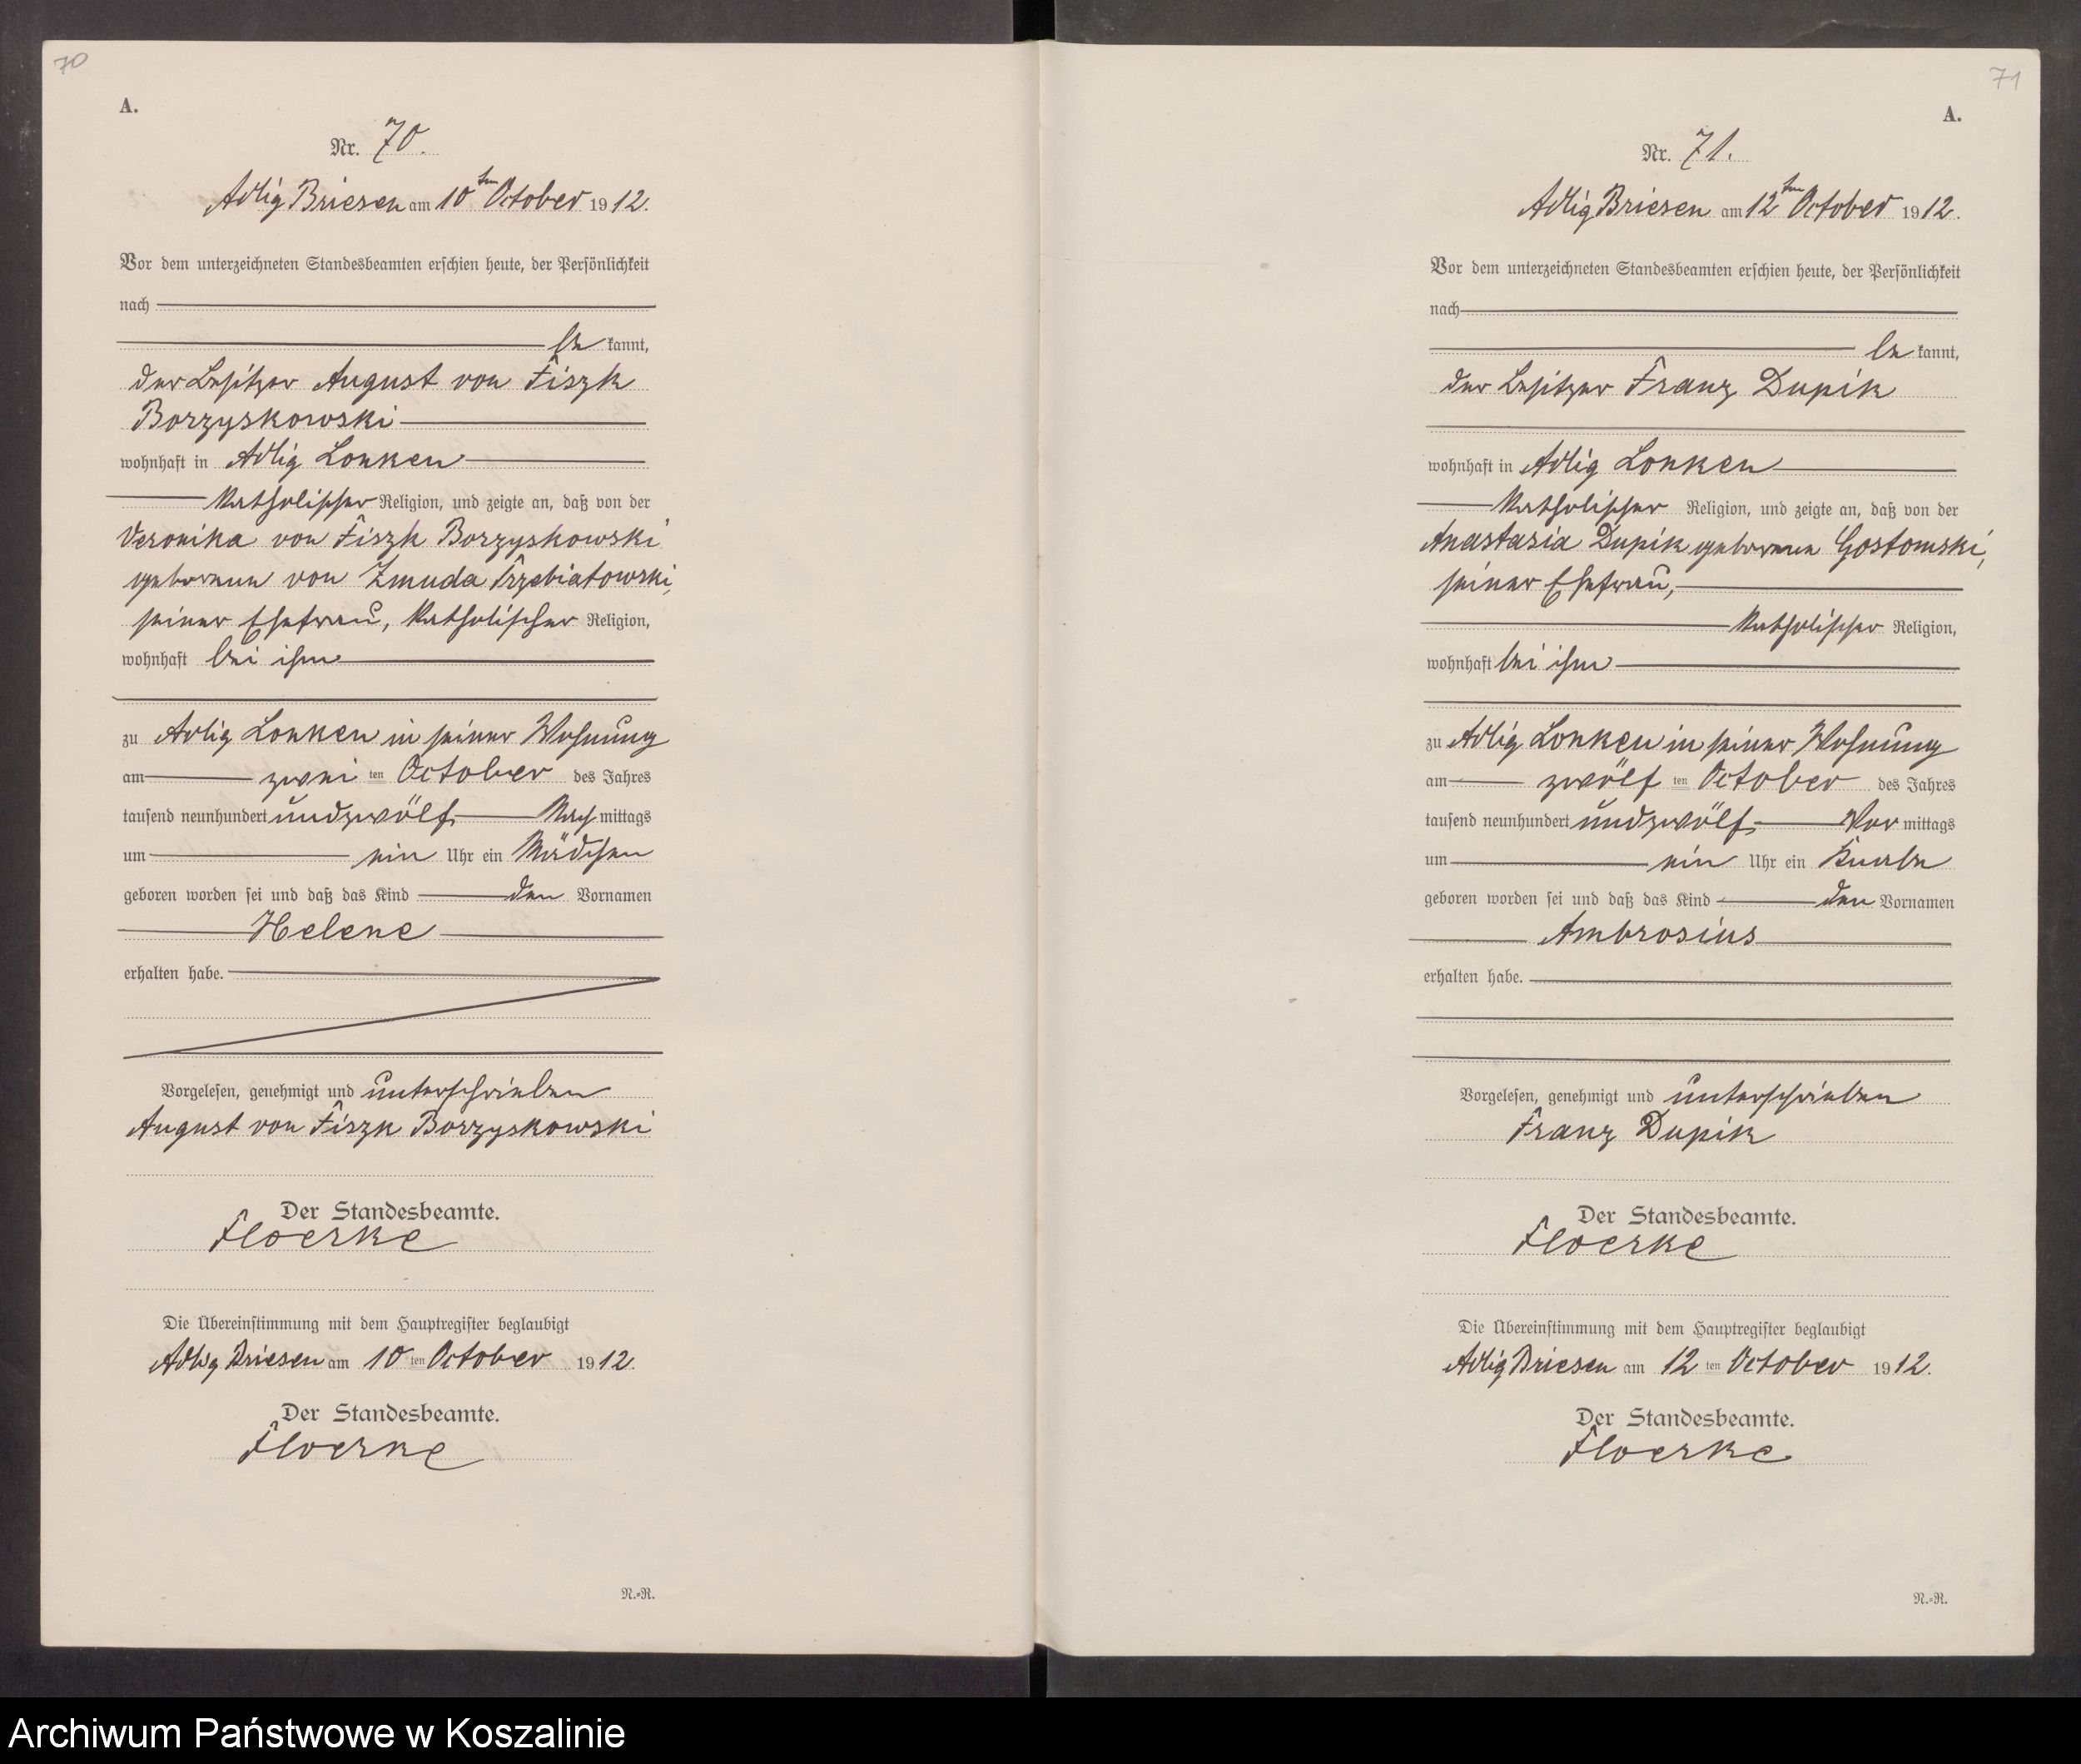 70
A.
Nr. 70.
Adlig Briesen am 10ten October 1912.
Vor dem unterzeichneten Standesbeamten erschien heute, der Persönlichkeit
nach
be kannt,
der Besitzer August von Fiszk
Borzyskowski
wohnhaft in Adlig Lonken
katholischer Religion, und zeigte an, daß von der
Veronika von Fiszk Borzyskowski
geborenen von Zmuda Trzebiatowski,
seiner Ehefrau, katholischer Religion,
wohnhaft bei ihm
zu Adlig Lonken in seiner Wohnung
am zwei ten October des Jahres
tausend neunhundert undzwölf Nach mittags
um ein Uhr ein Mädchen
geboren worden sei und daß das Kind den Vornamen
Helene
erhalten habe.
Vorgelesen, genehmigt und unterschrieben
August von Fiszk Borzyskowski
Der Standesbeamte.
Floerke
Die Übereinstimmung mit dem Hauptregister beglaubigt
Adlig Briesen am 10 ten October 1912.
Der Standesbeamte.
Floerke
N.-R.
71
A.
Nr. 71.
Adlig Briesen am 12ten October 1912.
Vor dem unterzeichneten Standesbeamten erschien heute, der Persönlichkeit
nach
be kannt,
der Besitzer Franz Dupik
wohnhaft in Adlig Lonken
katholischer Religion, und zeigte an, daß von der
Anastasia Dupik geborenen Gostomski,
seiner Ehefrau,
katholischer Religion,
wohnhaft bei ihm
zu Adlig Lonken in seiner Wohnung
am zwölf ten October des Jahres
tausend neunhundert undzwölf Vor mittags
um ein Uhr ein Knabe
geboren worden sei und daß das Kind den Vornamen
Ambrosius
erhalten habe.
Vorgelesen, genehmigt und unterschrieben
Franz Dupik
Der Standesbeamte.
Floerke
Die Übereinstimmung mit dem Hauptregister beglaubigt
Adlig Briesen am 12 ten October 1912.
Der Standesbeamte.
Floerke
N.-R.
Archiwum Państwowe w Koszalinie